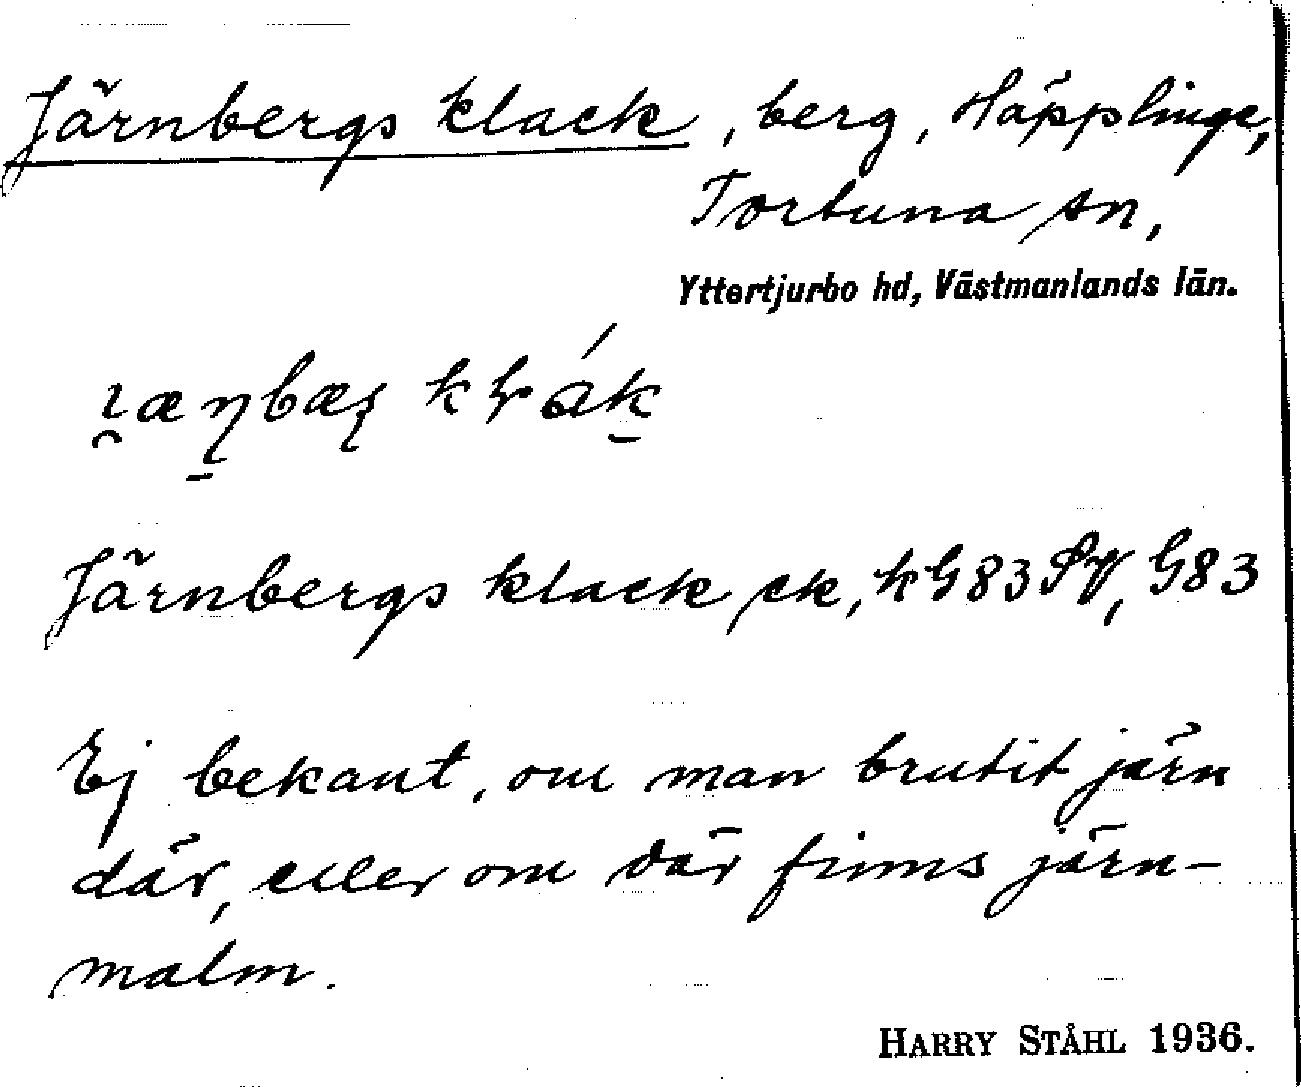 Järnbergs klack, berg, Häpplinge,
Tortuna sn,
Yttertjurbo hd, Västmanlands län.
Järnbergs klack ek, k G83 SV, G83
Ej bekant, om man brutit järn
där, eller om där finns järn-
malm.
HARRY STÅHL 1936.